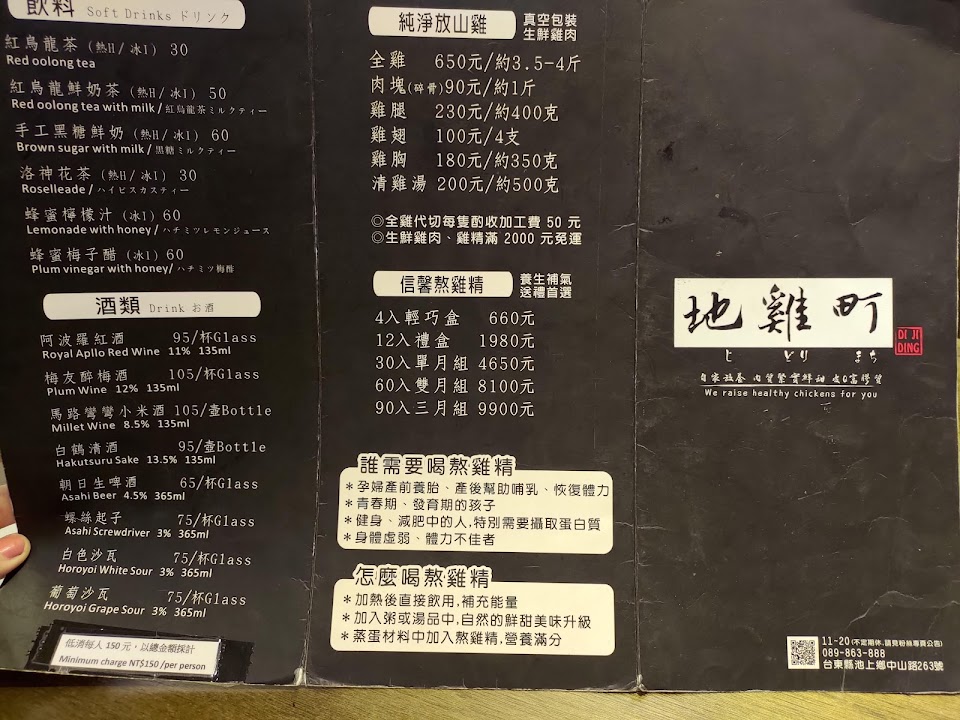 飲料 Soft Drinks ドリンク
紅烏龍茶 (熱H/冰I) 30
Red oolong tea
紅烏龍鮮奶茶 (熱H/冰I) 50
Red oolong tea with milk / 紅烏龍茶ミルクティー
手工黑糖鮮奶 (熱H/冰I) 60
Brown sugar with milk / 黒糖ミルクティー
洛神花茶 (熱H/冰I) 30
Roselleade / ハイビスカスティー
蜂蜜檸檬汁 (冰I) 60
Lemonade with honey / ハチミツレモンジュース
蜂蜜梅子醋 (冰I) 60
Plum vinegar with honey/ ハチミツ梅酢
酒類 Drink お酒
阿波羅紅酒 95/杯Glass
Royal Apllo Red Wine 11% 135ml
梅友醉梅酒 105/杯Glass
Plum Wine 12% 135ml
馬路彎彎小米酒 105/壺Bottle
Millet Wine 8.5% 135ml
白鶴清酒 95/壺Bottle
Hakutsuru Sake 13.5% 135ml
朝日生啤酒 65/杯Glass
Asahi Beer 4.5% 365ml
螺絲起子 75/杯Glass
Asahi Screwdriver 3% 365ml
白色沙瓦 75/杯Glass
Horoyoi White Sour 3% 365ml
葡萄沙瓦 75/杯Glass
Horoyoi Grape Sour 3% 365ml
低消每人 150 元，以總金額採計
Minimum charge NT$150 /per person
純淨放山雞 真空包裝
生鮮雞肉
全雞 650元/約3.5-4斤
肉塊(碎骨)90元/約1斤
雞腿 230元/約400克
雞翅 100元/4支
雞胸 180元/約350克
清雞湯 200元/約500克
◎全雞代切每隻酌收加工費 50 元
◎生鮮雞肉、雞精滿 2000 元免運
信馨熬雞精 養生補氣
送禮首選
4入輕巧盒 660元
12入禮盒 1980元
30入單月組 4650元
60入雙月組 8100元
90入三月組 9900元
誰需要喝熬雞精
＊孕婦產前養胎、產後幫助哺乳、恢復體力
＊青春期、發育期的孩子
＊健身、減肥中的人,特別需要攝取蛋白質
＊身體虛弱、體力不佳者
怎麼喝熬雞精
＊加熱後直接飲用,補充能量
＊加入粥或湯品中,自然的鮮甜美味升級
＊蒸蛋材料中加入熬雞精,營養滿分
地雞町
DI JI
DING
じ とり まち
自家放養 肉質緊實鮮甜 皮Q富膠質
We raise healthy chickens for you
11-20 (不定期休，請見粉絲專頁公告)
089-863-888
台東縣池上鄉中山路263號